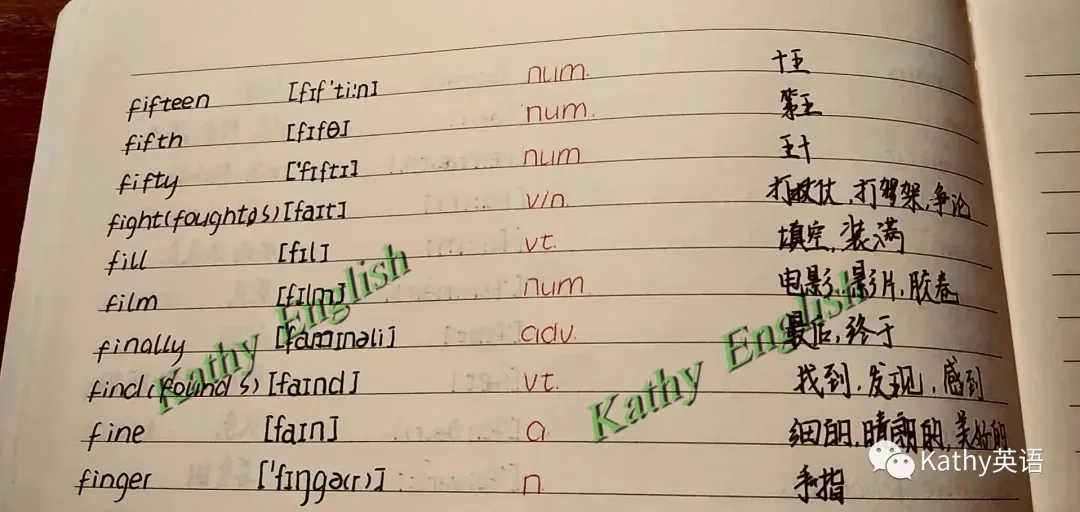 fifteen [fɪf'ti:n] num. 十五
fifth [fɪfθ] num. 第五
fifty ['fɪftɪ] num 五十
fight(foughtøs)[faɪt] v/n. 打仗,打架,争论
fill [fɪl] vt. 填空,装满
film [fɪlm] num 电影,影片,胶卷
finally [faɪnəli] adv. 最后,终于
find(found s)[faɪnd] vt. 找到,发现,感到
fine [faɪn] a. 细的,晴朗的,美好的
finger ['fɪŋgə(r)] n. 手指
Kathy English
Kathy English
Kathy英语